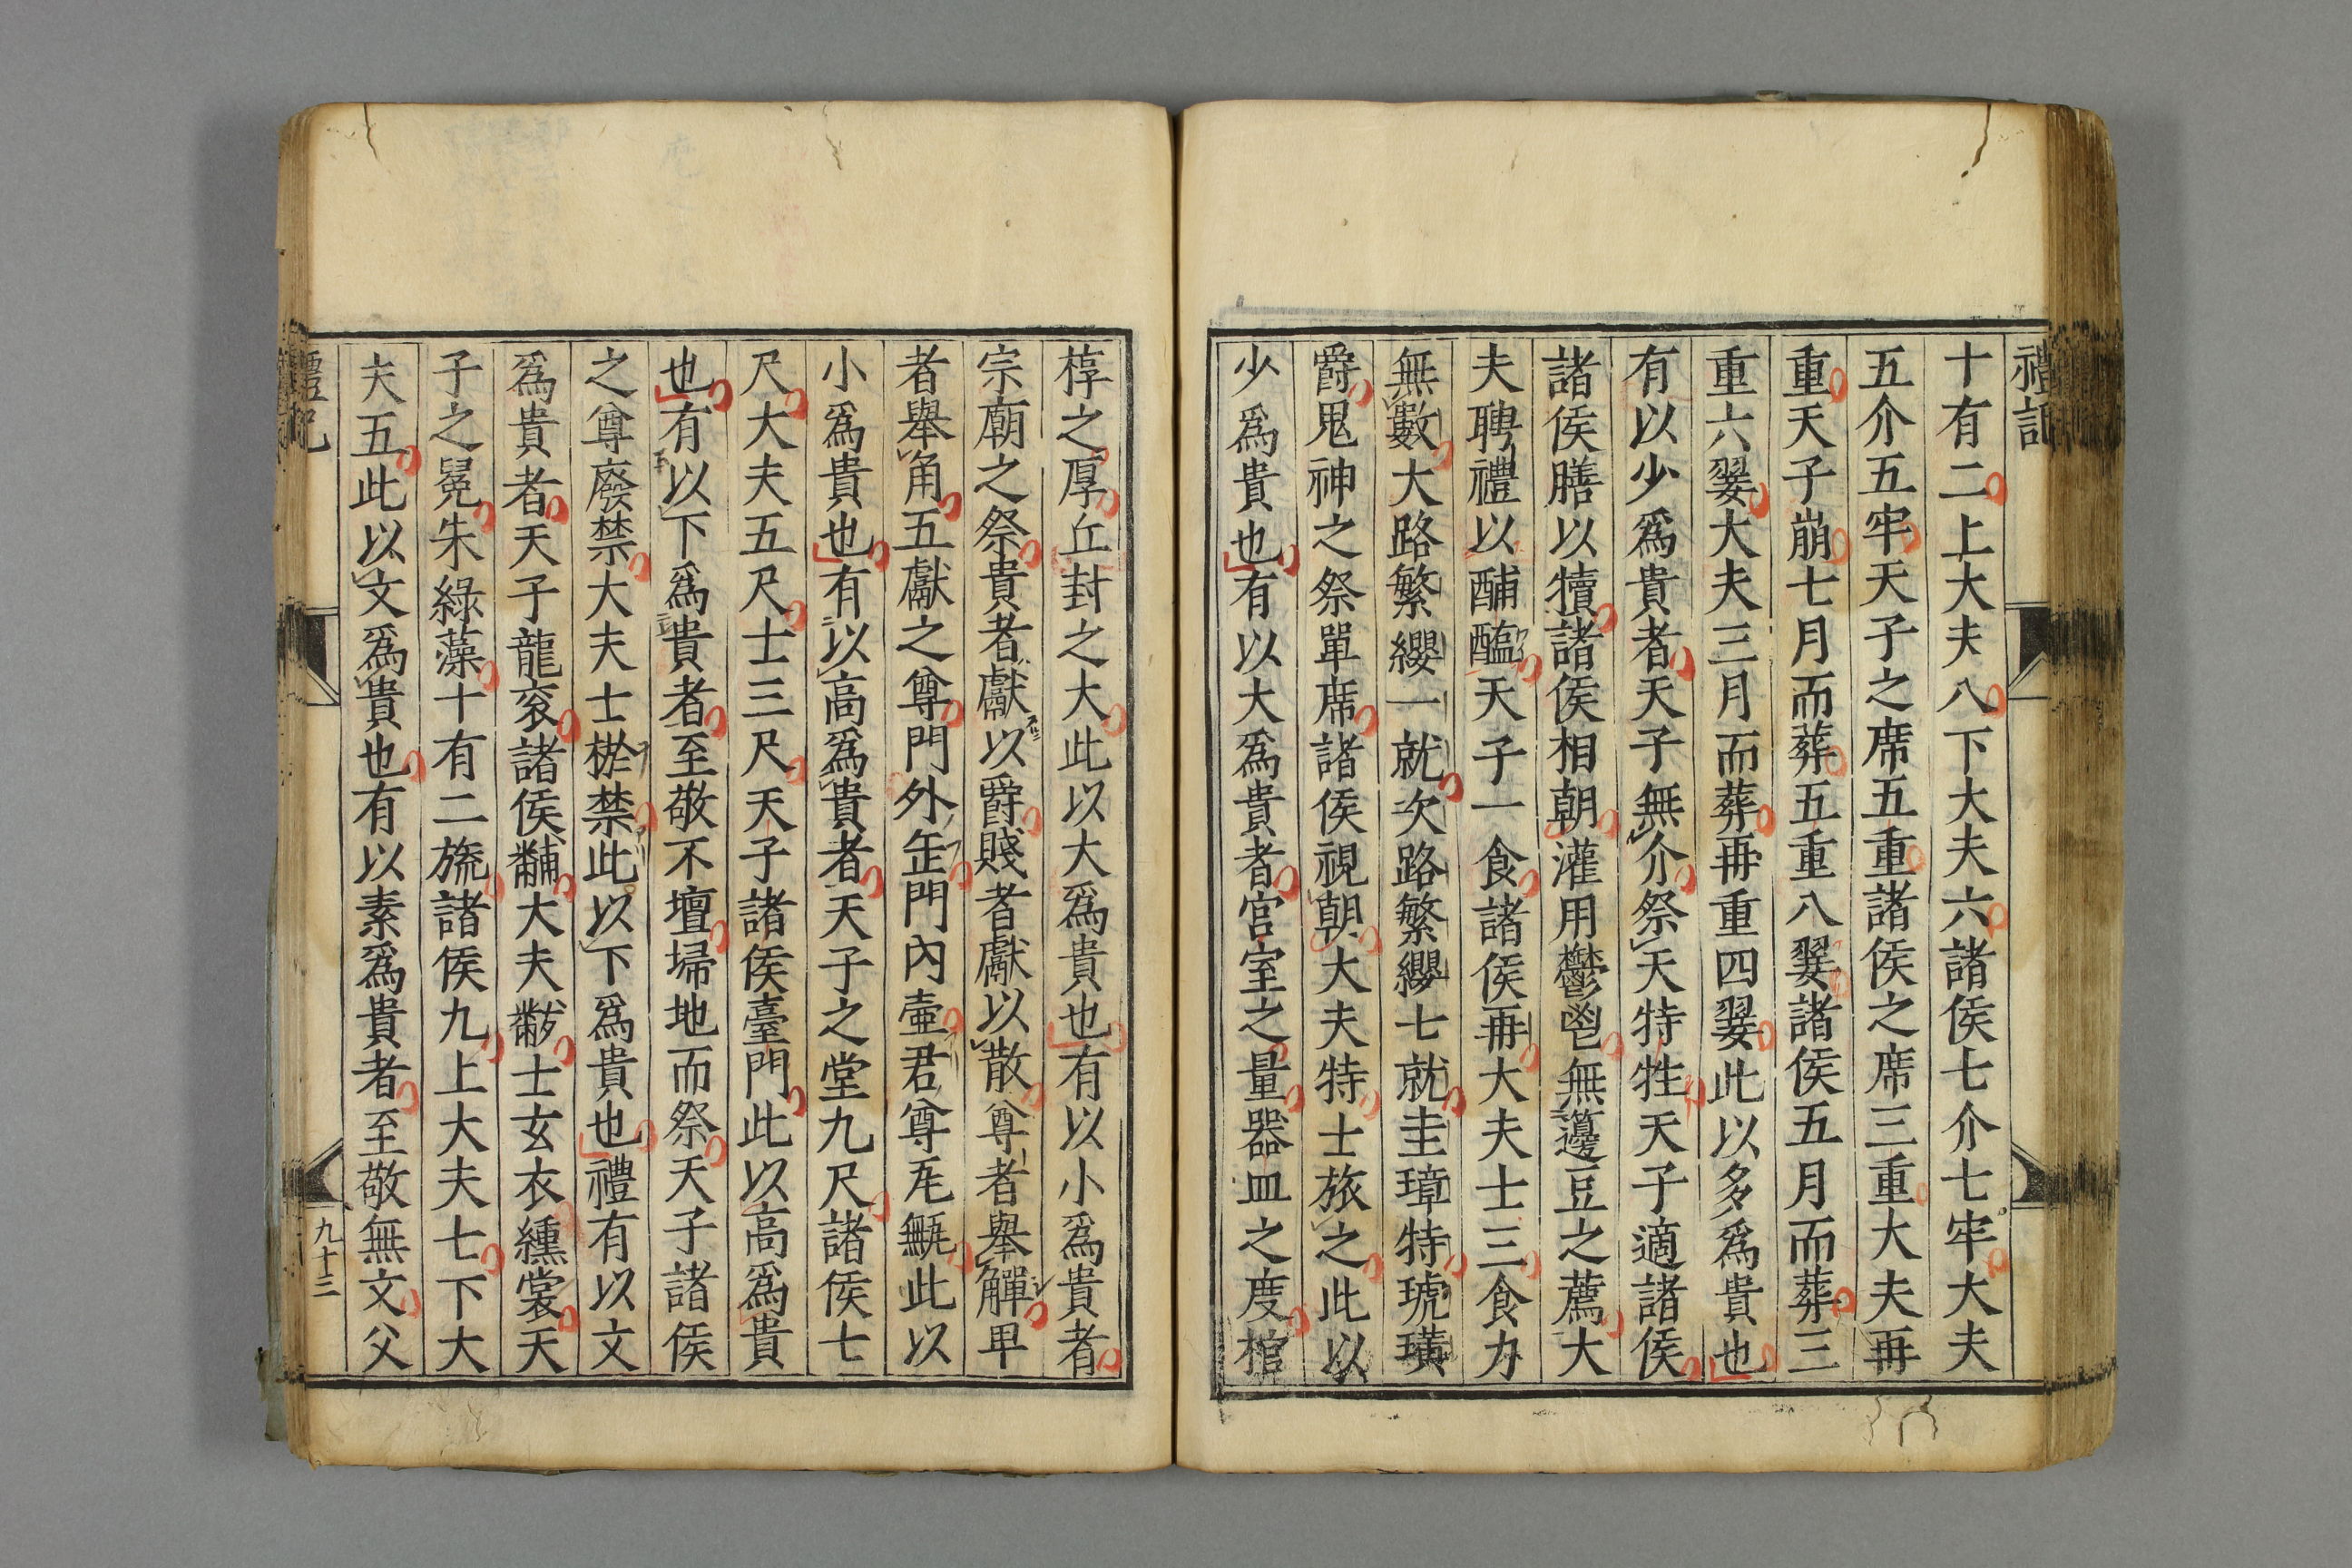 禮記
十有二上大夫八下大夫六諸侯七介七牢大夫
五介五牢天子之席五重諸侯之席三重大夫再
重天子崩七月而葬五重八翣諸侯五月而葬三
重六翣大夫三月而葬再重四翣此以多爲貴也
有以少爲貴者天子無介祭天特牲天子適諸侯
諸侯膳以犢諸侯相朝灌用鬱鬯無籩豆之薦大
夫聘禮以酺醢天子一食諸侯再大夫士三食力
無數大路繁纓一就次路繁纓七就圭璋特琥璜
爵鬼神之祭單席諸侯視朝大夫特士旅之此以
少爲貴也有以大爲貴者宮室之量器皿之度棺
椁之厚丘封之大此以大爲貴也有以小爲貴者
宗廟之祭貴者獻以爵賤者獻以散尊者舉觶卑
者舉角五獻之尊門外缶門內壷君尊瓦甒此以
小爲貴也有以高爲貴者天子之堂九尺諸侯七
尺大夫五尺士三尺天子諸侯臺門此以高爲貴
也有以下爲貴者至敬不壇埽地而祭天子諸侯
之尊廢禁大夫士棜禁此以下爲貴也禮有以文
爲貴者天子龍衮諸侯黼大夫黻士玄衣纁裳天
子之冕朱綠藻十有二旒諸侯九上大夫七下大
夫五此以文爲貴也有以素爲貴者至敬無文父
禮記
九十三